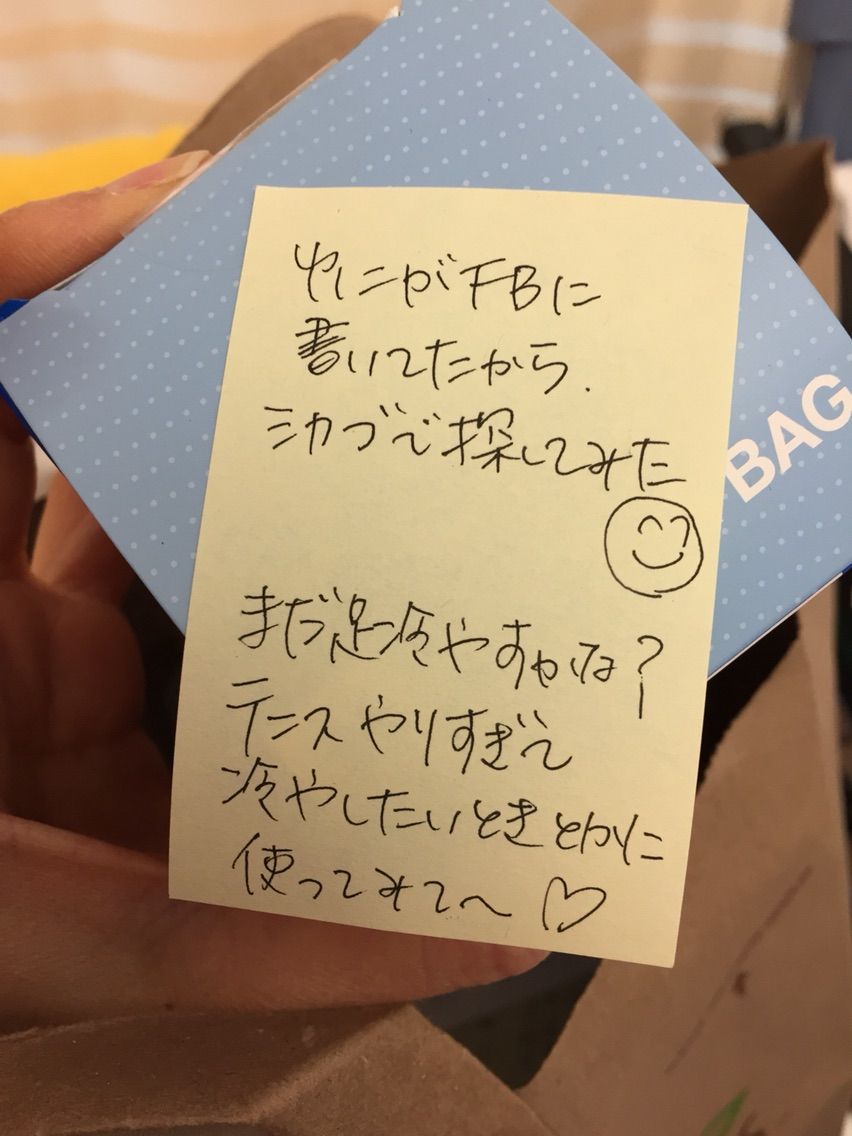 ゆにがFBに
書いてたから.
シカゴで探してみた
まだ足冷やすかな?
テニスやりすぎて
冷やしたいときとかに
使ってみて〜♡
BAG